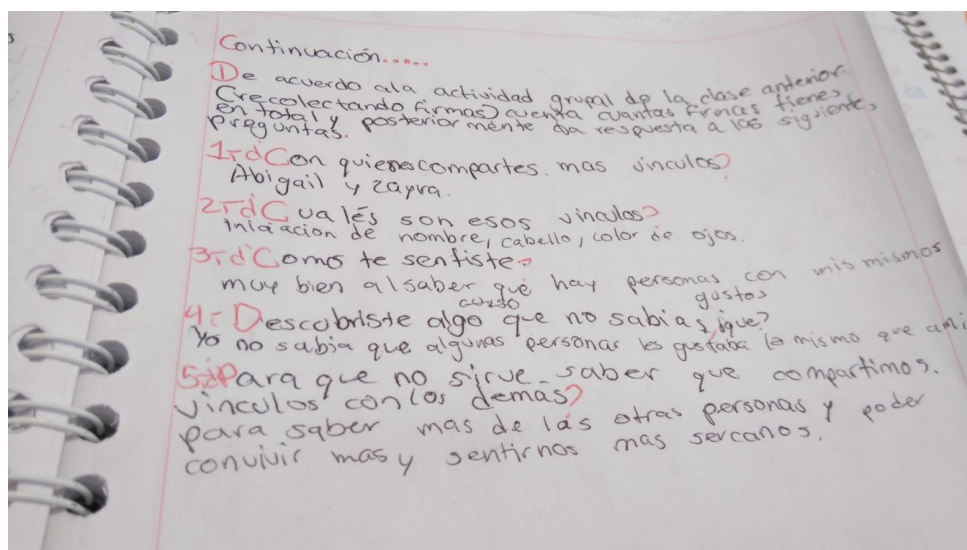 Continuación.....
① De acuerdo ala actividad grupal de la clase anterior.
(recolectando firmas) cuenta cuantas firmas tienes
en total y posteriormente da respuesta a los siguiente,
preguntas.
1.- ¿Con quienes compartes. mas vinculos?
Abigail y zayra.
2.- ¿Cualés son esos vinculos?
Iniciacion de nombre, cabello, color de ojos.
3.- ¿Como te sentiste?
muy bien al saber que hay personas con mis mismos
gustos
4.- Descubriste algo que no sabias, ¿que?
Yo no sabia que algunas personas les gustaba lo mismo que ami
5.- ¿Para que no sirve saber que compartimos.
vinculos con los demas?
para saber mas de las otras personas y poder
convivir mas y sentirnos mas sercanos.